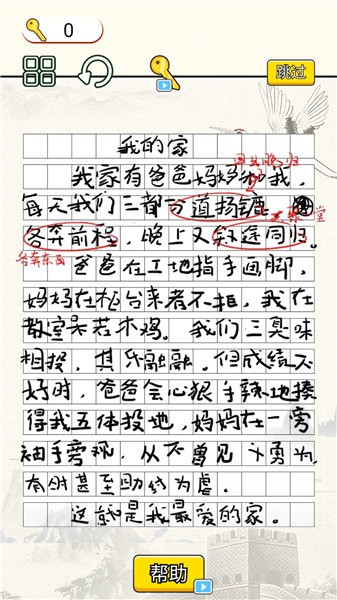 0
跳过
我的家
早出晚归
我家有爸爸妈妈和我,
每天我们三都分道扬镳
堂
各奔前程,晚上又殊途同归。
各奔东西
爸爸在工地指手画脚,
妈妈在柜台来者不拒,我在
教室呆若木鸡。我们三臭味
相投,其乐融融。但成绩不
好时,爸爸会心狠手辣地揍
得我五体投地,妈妈在一旁
袖手旁观,从不曾见 勇为,
有时甚至助纣为虐。
这就是我最爱的家。
帮助